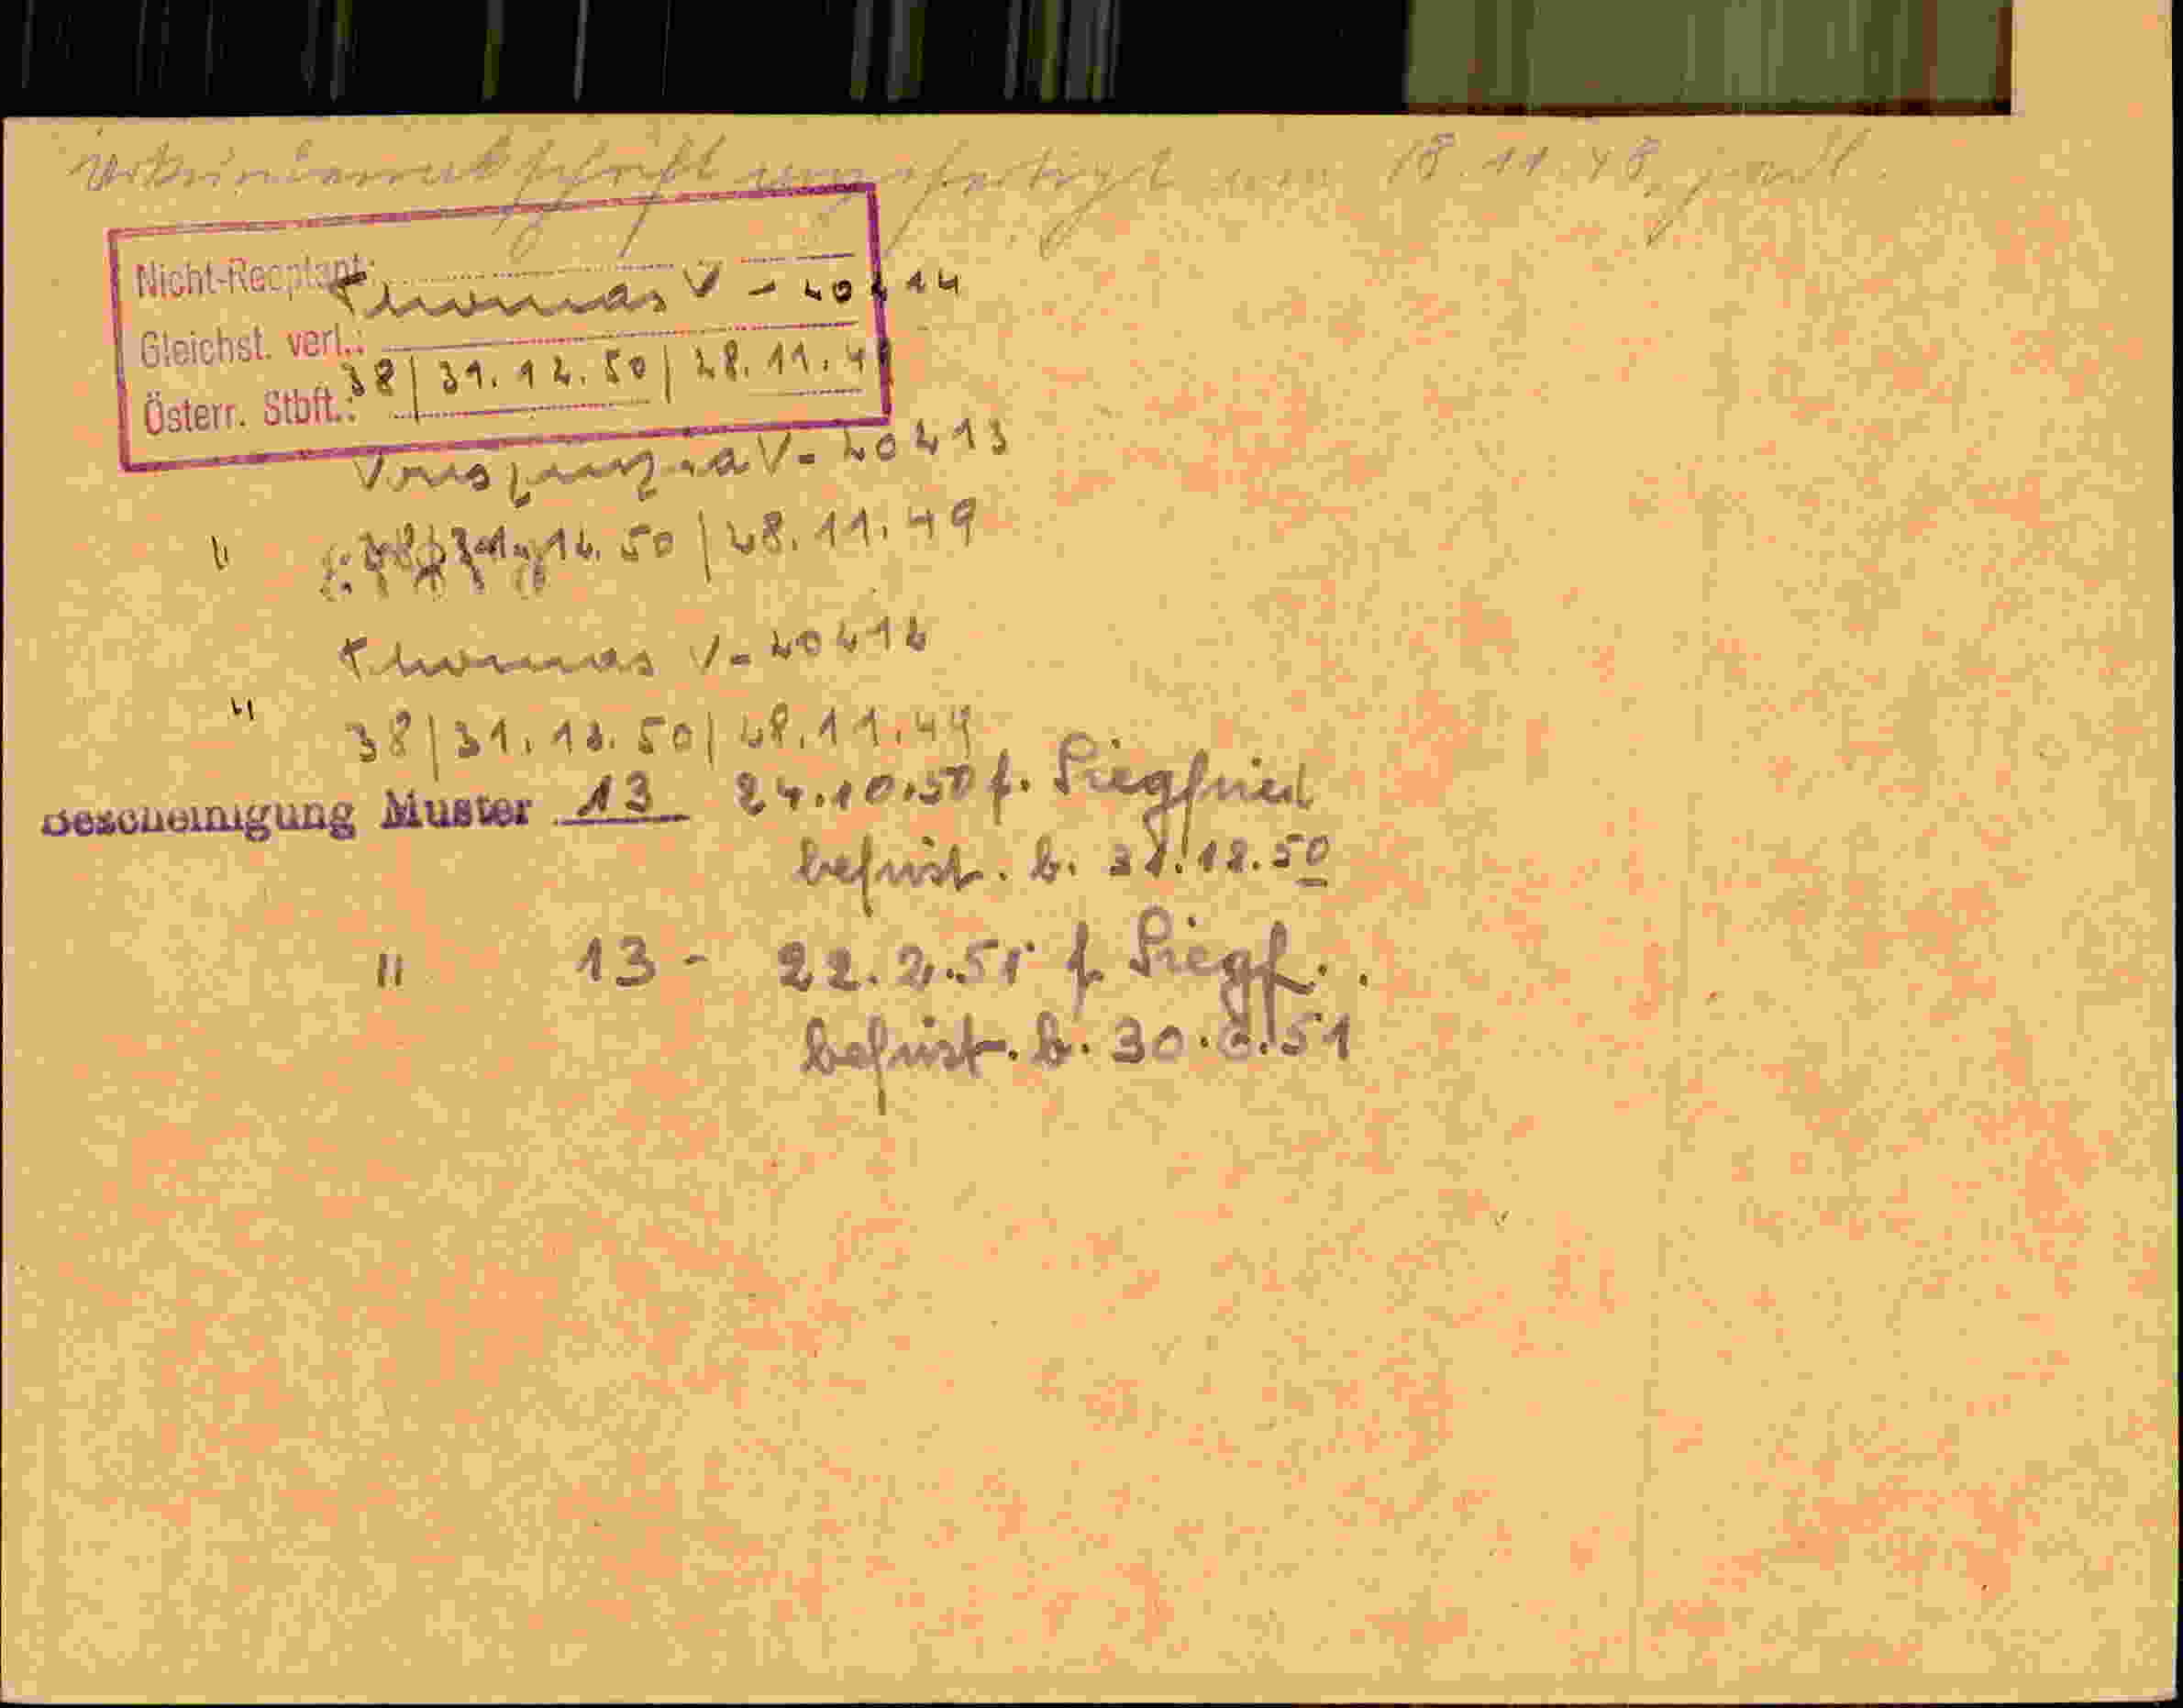 18.11.48
Nicht-Reoptant:
Thomas V - 20214
Gleichst. verl.:
Österr. Stbft.: 38 | 31. 12. 50 | 28. 11. 4
V - 20213
" 12. 50 | 28. 11. 49
Thomas V - 20212
" 38 | 31. 12. 50 | 28. 11. 49
Bescheinigung Muster 13 24.10.50 f. Siegfried
befrist. b. 31.12.50
" 13 - 22. 2. 51 f. Siegf..
befrist. b. 30. 51